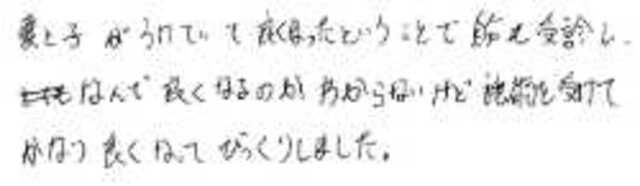 妻と子がうけていて良くなったということで私も受診し
なんで良くなるのかわからないけど施術を受けて
かなり良くなってびっくりしました。